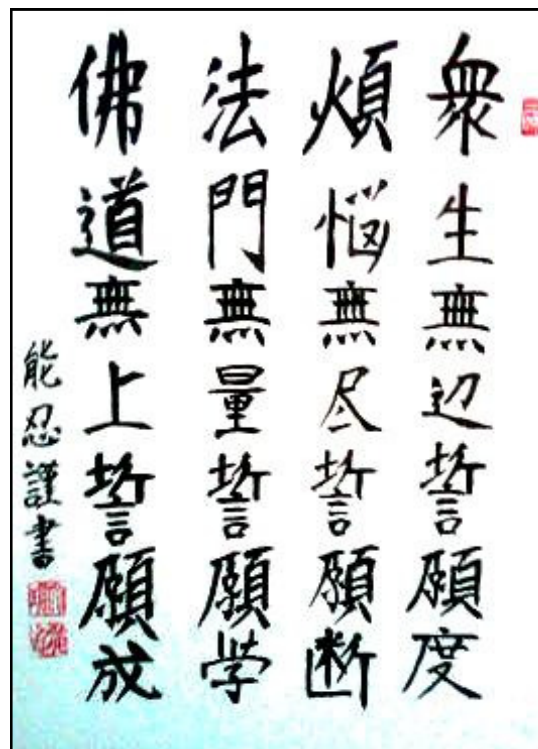 衆生無辺誓願度
煩悩無尽誓願断
法門無量誓願学
佛道無上誓願成
能忍謹書